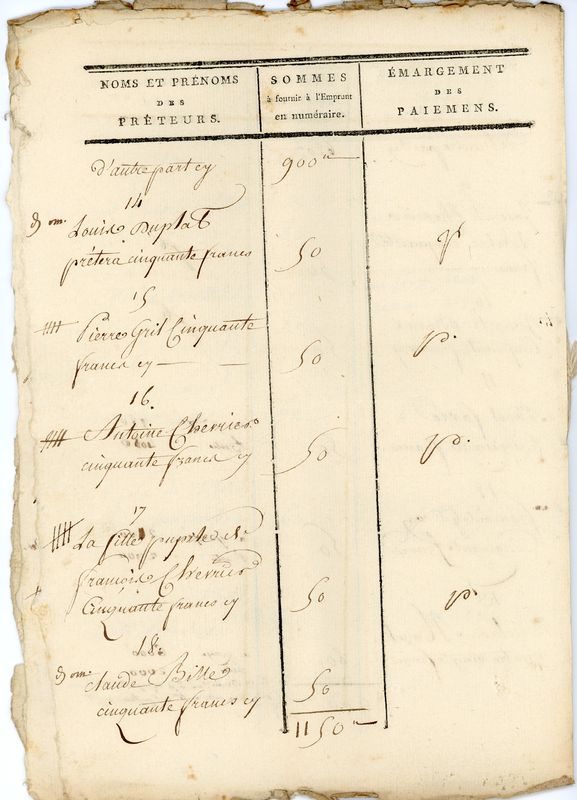 NOMS ET PRÉNOMS
DES
PRÊTEURS.
SOMMES
à fournir à l'Emprunt
en numéraire.
ÉMARGEMENT
DES
PAIEMENS.
d'autre part cy 900
14
Louis Duplat
prêtera cinquante francs 50
15
Pierre Gril Cinquante
francs cy 50
16.
Antoine Chevrier
cinquante francs cy 50
17
La fille pupile de
francois Chevrier
Cinquante francs cy 50
18.
claude Billé
cinquante francs cy 50
1150